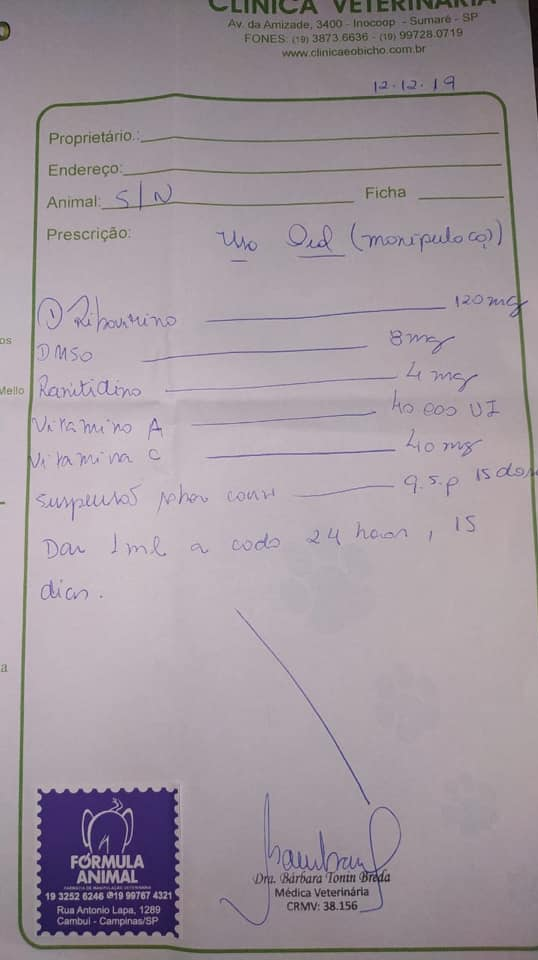 CLÍNICA VETERINÁRIA
Av. da Amizade, 3400 - Inocoop - Sumaré - SP
FONES: (19) 3873.6636 - (19) 99728.0719
www.clinicaeobicho.com.br
12.12.19
Proprietário.:
Endereço:
Animal: S/N Ficha
Prescrição: Uso Oral (manipulação)
① Ribavirina 120mg
DMSO 8mg
Ranitidina 4mg
Vitamina A 40 000 UI
Vitamina C 40mg
suspensão sabor carne q.s.p 15 dos
Dar 1ml a cada 24 horas, 15
dias.
os
Mello
a
FÓRMULA
ANIMAL
FARMÁCIA DE MANIPULAÇÃO VETERINÁRIA
19 3252 6246 19 99767 4321
Rua Antonio Lapa, 1289
Cambuí - Campinas/SP
Dra. Bárbara Tonin Breda
Médica Veterinária
CRMV: 38.156